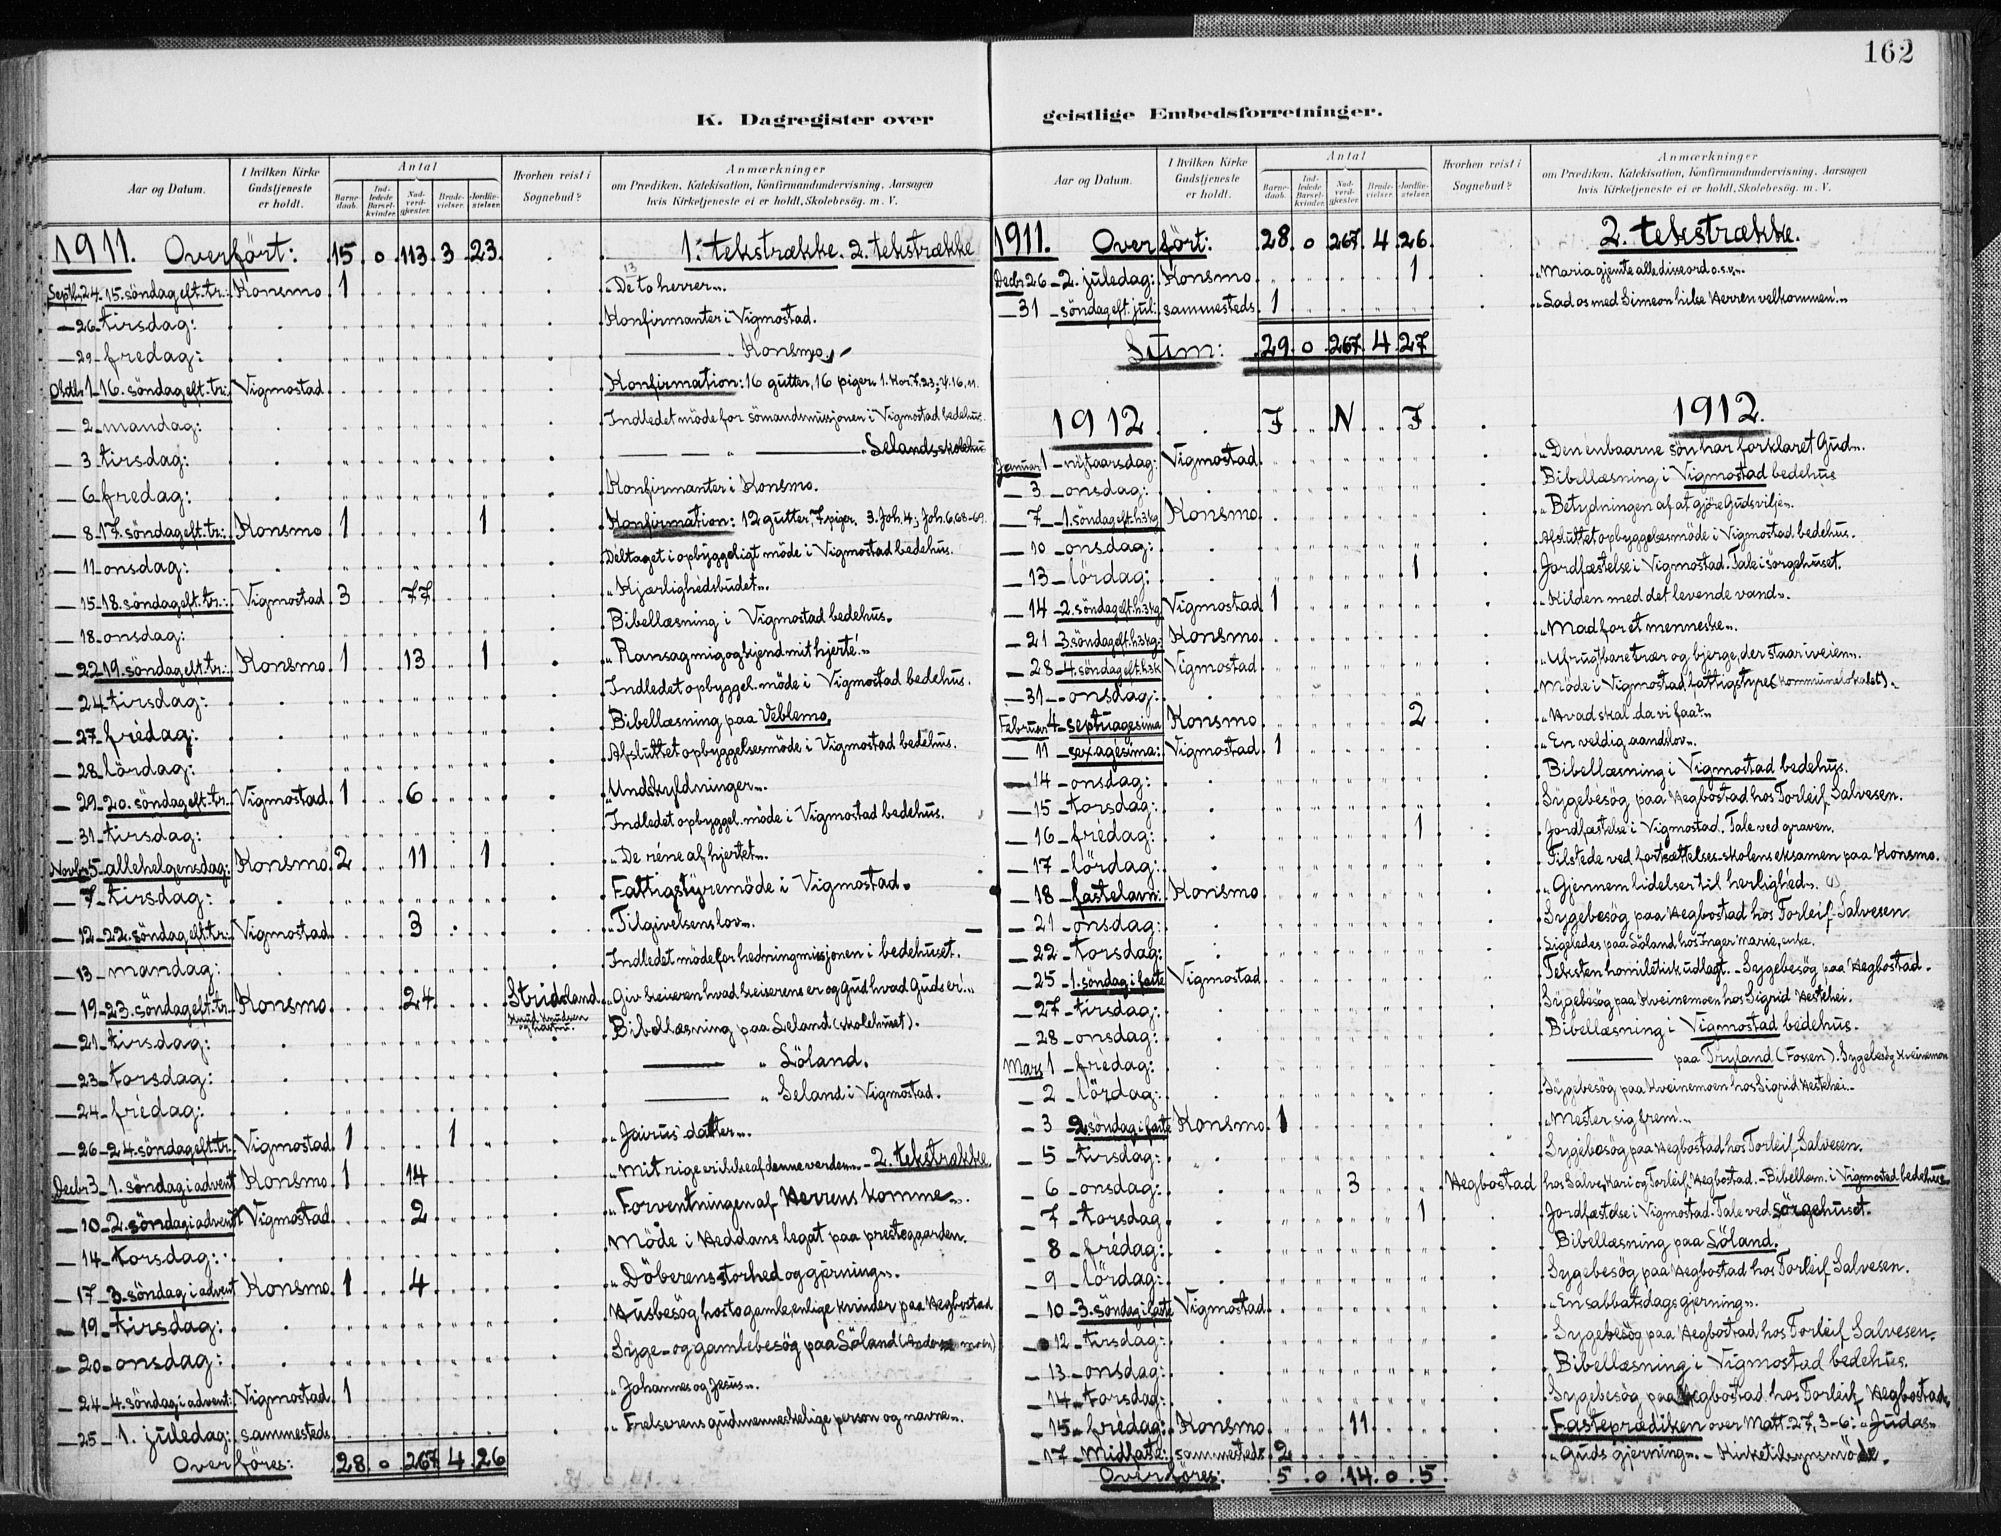 162
K. Dagregister over geistlige Embedsforretninger.
Aar og Datum. I hvilken Kirke Gudstjeneste er holdt. Antal Barnedaab. Indledede Barselkvinder. Nadverdgjæster. Brudevielser. Jordfæstelser. Hvorhen reist i Sognebud? Anmærkninger om Prædiken, Katekisation, Konfirmandundervisning, Aarsagen hvis Kirketjeneste ei er holdt, Skolebesøg. m. V.
1911. Overført: 15 0 113 3 23 1. tekstrække. 2. tekstrække
Septbr 24 - 15. söndag eft. tr.: Konsmo 1 "De to herrer".
- 26 - tirsdag: Konfirmanter i Vigmostad.
- 29 - fredag: — " Konsmo.
Oktbr 1 - 16. söndag eft. tr. Vigmostad Konfirmation: 16 gutter, 16 piger. 1. Kor. 7.23;
- 2 - mandag: Indledet möde for sömandsmissjonen i Vigmostad bedehus.
- 3 - tirsdag: — — " — Selands skolehus
- 6 - fredag: Konfirmanter i Konsmo.
- 8 - 17. söndag eft. tr.: Konsmo 1 1 Konfirmation: 12 gutter, 7 piger. 3. Joh. 4; Joh. 6,68-69.
- 11 - onsdag: Deltaget i opbyggeligt möde i Vigmostad bedehus.
- 15 - 18. söndag eft. tr.: Vigmostad 3 77 "Kjærlighedsbudet".
- 18 - onsdag: Bibellæsning i Vigmostad bedehus.
- 22 - 19. söndag eft. tr.: Konsmo 1 13 1 "Ransag mig og kjend mit hjerte!"
- 24 - tirsdag: Indledet opbyggel. möde i Vigmostad bedehus.
- 27 - fredag: Bibellæsning paa Veblemo.
- 28 - lördag: Afsluttet opbyggelsesmöde i Vigmostad bedehus.
- 29 - 20. söndag eft. tr. Vigmostad 1 6 "Undskyldninger".
- 31 - tirsdag: Indledet opbyggel. möde i Vigmostad bedehus.
Novbr 5 - allehelgensdag: Konsmo 2 11 1 "De réne af hjertet".
- 7 - tirsdag: Fattigstyremöde i Vigmostad.
- 12 - 22. söndag eft. tr.: Vigmostad 3 "Tilgivelsens lov".
- 13 - mandag: Indledet möde for hedningmissjonen i bedehuset.
- 19 - 23. söndag eft. tr. Konsmo 24 Stridsland Knud Knudsen og hustru. "Giv keiseren hvad keiserens er og Gud hvad Guds er!"
- 21 - tirsdag: Bibellæsning paa Seland (skolehuset).
- 23 - torsdag: — " Löland.
- 24 - fredag: — " Seland i Vigmostad.
- 26 - 24. söndag eft. tr. Vigmostad 1 1 "Jairus' datter".
Decbr 3 - 1. söndag i advent Konsmo 1 14 "Mit rige er ikke af denne verden". - 2. tekstrække.
- 10 - 2. söndag i advent Vigmostad 2 "Forventningen af Herrens komme".
- 14 - torsdag: Möde i Heddans legat paa prestegaarden.
- 17 - 3. söndag i advent Konsmo 1 4 "Döberens storhed og gjerning".
- 19 - tirsdag: Husbesög hos to gamle, enlige kvinder paa Hegbostad
- 20 - onsdag: Syge- og gamlebesög paa Löland
- 24 - 4. söndag i advent: Vigmostad 1 "Johannes og Jesus".
- 25 - 1. juledag: sammesteds "Frelserens gudmenneskelige person og navne".
Overföres: 28 0 267 4 26
Aar og Datum. I hvilken Kirke Gudstjeneste er holdt. Antal Barnedaab. Indledede Barselkvinder. Nadverdgjæster. Brudevielser. Jordfæstelser. Hvorhen reist i Sognebud? Anmærkninger om Prædiken, Katekisation, Konfirmandundervisning, Aarsagen hvis Kirketjeneste ei er holdt, Skolebesøg. m. V.
1911. Overført: 28 0 267 4 26 2. tekstrække.
Decbr 26 - 2. juledag: Konsmo 1 "Maria gjemte alle disse ord o.s.v."
- 31 - söndag eft. jul: sammesteds 1 "Lad os med Simeon hilse Herren velkommen!"
Sum: 29 0 267 4 27
1912 F N F 1912.
Januar 1 - nytaarsdag: Vigmostad "Den énbaarne sön har forklaret Gud".
- 3 - onsdag: Bibellæsning i Vigmostad bedehus
- 7 - 1. söndag eft. h.3.kg. Konsmo "Betydningen af at gjöre Guds vilje".
- 10 - onsdag: Afsluttet opbyggelsesmöde i Vigmostad bedehus.
- 13 - lördag: 1 Jordfæstelse i Vigmostad. Tale i sörgehuset.
- 14 - 2. söndag eft. h.3.kg. Vigmostad 1 "Kilden med det levende vand".
- 21 - 3. söndag eft. h.3.kg. Konsmo "Mad for et menneske".
- 28 - 4. söndag eft. h.3.k. Vigmostad "Ufrugtbare trær og bjerge, der staar i veien".
- 31 - onsdag: Möde i Vigmostad fattigstyre (kommunelokalet).
Februar 4 - septuagesima Konsmo 2 "Hvad skal da vi faa?"
- 11 - sexagesima: Vigmostad 1 "En veldig aandslov".
- 14 - onsdag: Bibellæsning i Vigmostad bedehus.
- 15 - torsdag: Sygebesög paa Hegbostad hos Torleif Salvesen.
- 16 - fredag: 1 Jordfæstelse i Vigmostad. Tale ved graven.
- 17 - lördag: Tilstede ved fortsættelses-skolens eksamen paa Konsmo.
- 18 - fastelavn: Konsmo "Gjennem lidelser til herlighed".
- 21 - onsdag: Sygebesög paa Hegbostad hos Torleif Salvesen.
- 22 - torsdag: Ligeledes paa Löland hos Inger Marie, enke.
- 25 - 1. söndag i faste Vigmostad Teksten homiletisk udlagt. - Sygebesög paa Hegbostad.
- 27 - tirsdag: Sygebesög paa Kveinemoen hos Sigrid Hestehei.
- 28 - onsdag: Bibellæsning i Vigmostad bedehus.
Mars 1 - fredag: — paa Tryland (Fossen). Sygebesög Kveinemoen
- 2 - lördag: Sygebesög paa Kveinemoen hos Sigrid Hestehei.
- 3 - 2. söndag i faste Konsmo 1 "Mester sig frem!"
- 5 - tirsdag: Sygebesög paa Hegbostad hos Torleif Salvesen.
- 6 - onsdag: 3 Hegbostad hos Salve, Kari og Torleif Hegbostad. - Bibellæsn. i Vigmostad bedehus.
- 7 - torsdag 1 Jordfæstelse i Vigmostad. Tale ved sörgehuset.
- 8 - fredag: Bibellæsning paa Löland.
- 9 - lördag: Sygebesög paa Hegbostad hos Torleif Salvesen.
- 10 - 3. söndag i faste Vigmostad "En sabbatsdagsgjerning".
- 12 - tirsdag: Sygebesög paa Hegbostad hos Torleif Salvesen.
- 13 - onsdag: Bibellæsning i Vigmostad bedehus.
- 14 - torsdag: Sygebesög paa Hegbostad hos Torleif Hegbostad.
- 15 - fredag: Konsmo 11 Fasteprædiken over Matt. 27, 3-6: "Judas"
- 17 - Midfaste: sammesteds 2 "Guds gjerning". - Kirketilsynsmöde.
Overföres: 5 0 14 0 5